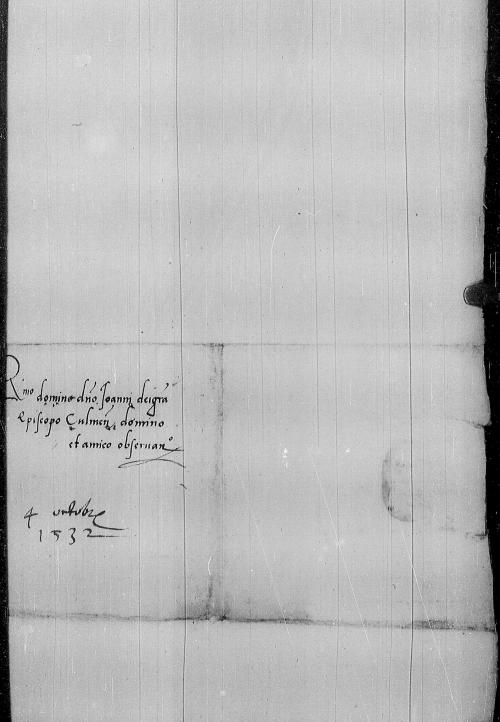 R.mo domino dno Joanni dei gra
Episcopo Culmen. domino
et amico observan.o
4 octobr
1532